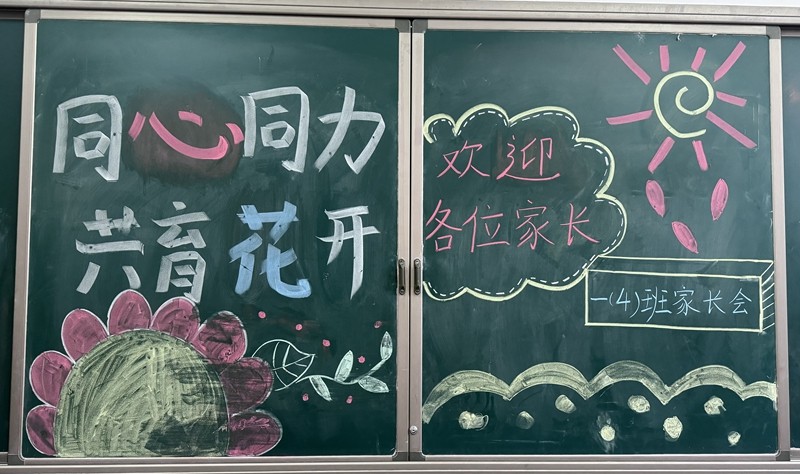 同心同力
共育花开
欢迎
各位家长
一(4)班家长会